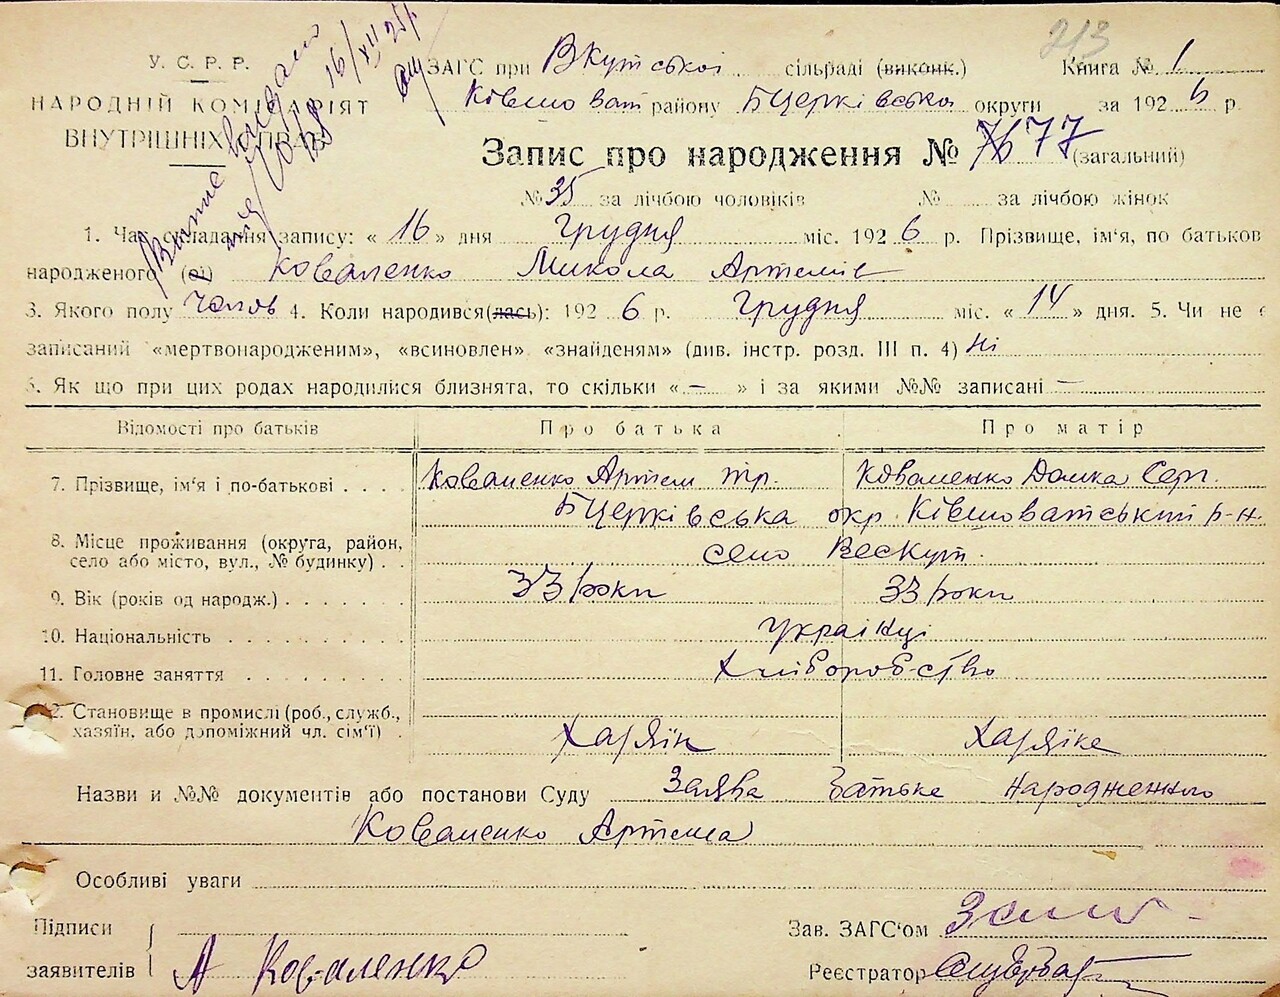 213
У. С. Р. Р.
НАРОДНІЙ КОМІСАРІЯТ
ВНУТРІШНІХ СПРАВ
Витяг видано
16/XII 25 р.
ЗАГС при Вкутської сільраді (виконк.) Книга № 1
Ківшоват району БЦерківська округи за 1926 р.
Запис про народження № 76 77 (загальний)
№ 35 за лічбою чоловіків № за лічбою жінок
1. Час складання запису: « 16 » дня Грудня міс. 1926 р. Прізвище, ім'я, по батьков
народженого (ої) Коваленко Микола Артемів
3. Якого полу Чолов 4. Коли народився(лась): 1926 р. Грудня міс. « 14 » дня. 5. Чи не є
записаний «мертвонародженим», «всиновлен» «знайденям» (див. інстр. розд. III п. 4) Ні
6. Як що при цих родах народилися близнята, то скільки « – » і за якими №№ записані –
Відомості про батьків Про батька Про матір
7. Прізвище, ім'я і по-батькові . . . . Коваленко Артем Тр. Коваленко Домка Серг.
БЦерківська окр. Ківшоватський р-н.
8. Місце проживання (округа, район,
село або місто, вул., № будинку) . . село Вескут.
9. Вік (років од народж.) . . . . . . . 33 роки 33 роки
10. Національність . . . . . . . . . . Українці
11. Головне заняття . . . . . . . . . Хліборобство
12. Становище в промислі (роб., служб.,
хазяїн, або допоміжний чл. сім'ї) . Хазяін Хазяіка
Назви и №№ документів або постанови Суду Заява Батька Народженого
Коваленко Артема
Особливі уваги
Підписи
заявителів А Коваленко
Зав. ЗАГС'ом
Реєстратор